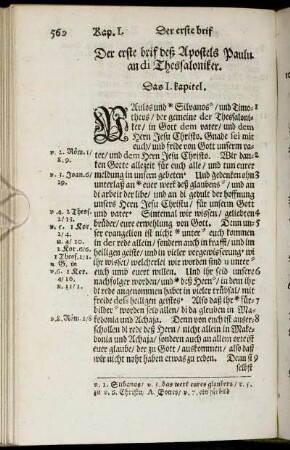 562 Kap. I. Der erste brif
Der erste brif deß Apostels Pauli
an di Thessaloniker.
Das I. kapitel.
PAulos und * Silvanos / und Timo- 1
theus / der gemeine der Thessaloni-
ker / in Gott dem vater / und dem
Hern Jesu Christo. Gnade sei mit
euch / und fride von Gott unserm va-
ter / und dem Hern Jesu Christo. Wir dan- 2
ken Gotte allezeit für euch alle / und tun eurer
meldung in unserm gebeten Und gedenken ohn 3
unterlaß an * euer werk deß glaubens / und an
di arbeit der libe / und an di gedult der hoffnung
unsers Hern Jesu Christi / für unserm Gott
und vater Sintemal wir wissen / geliebten 4
brüder / eure erwehlung von Gott. Dan un- 5
ser evangelion ist nicht * unter * euch kommen
in der rede allein / sondern auch in krafft / und im
heiligen geiste / und in vieler vergewissung: wi
ihr wisset / welcherlei wir worden sind * unter
euch und euert willen. Und ihr seid unsere 6
nachfolger worden / und * deß Hern / in dem ihr
di rede angenommen habet in vieler trübsal / mit
freide deß heiligen geistes Also daß ihr * für- 7
bilder * worden seid allen / di da gleuben in Ma-
kedonia und Achaja. Denn von euch ist auser- 8
schollen di rede deß Hern / nicht allein in Make-
donia und Achaja / sondern auch an allen orten ist
euer glaube / der zu Gott / auskommen / also daß
wir nicht noht haben etwas zu reden. Denn si 9
selbst
v. 2. Röm. 1/
8. 9.
v. 5. 1 Kor.
2/4.
v. 4/20.
v. 6. 1 Kor.
4/16.
v. 8. Röm. 1/8